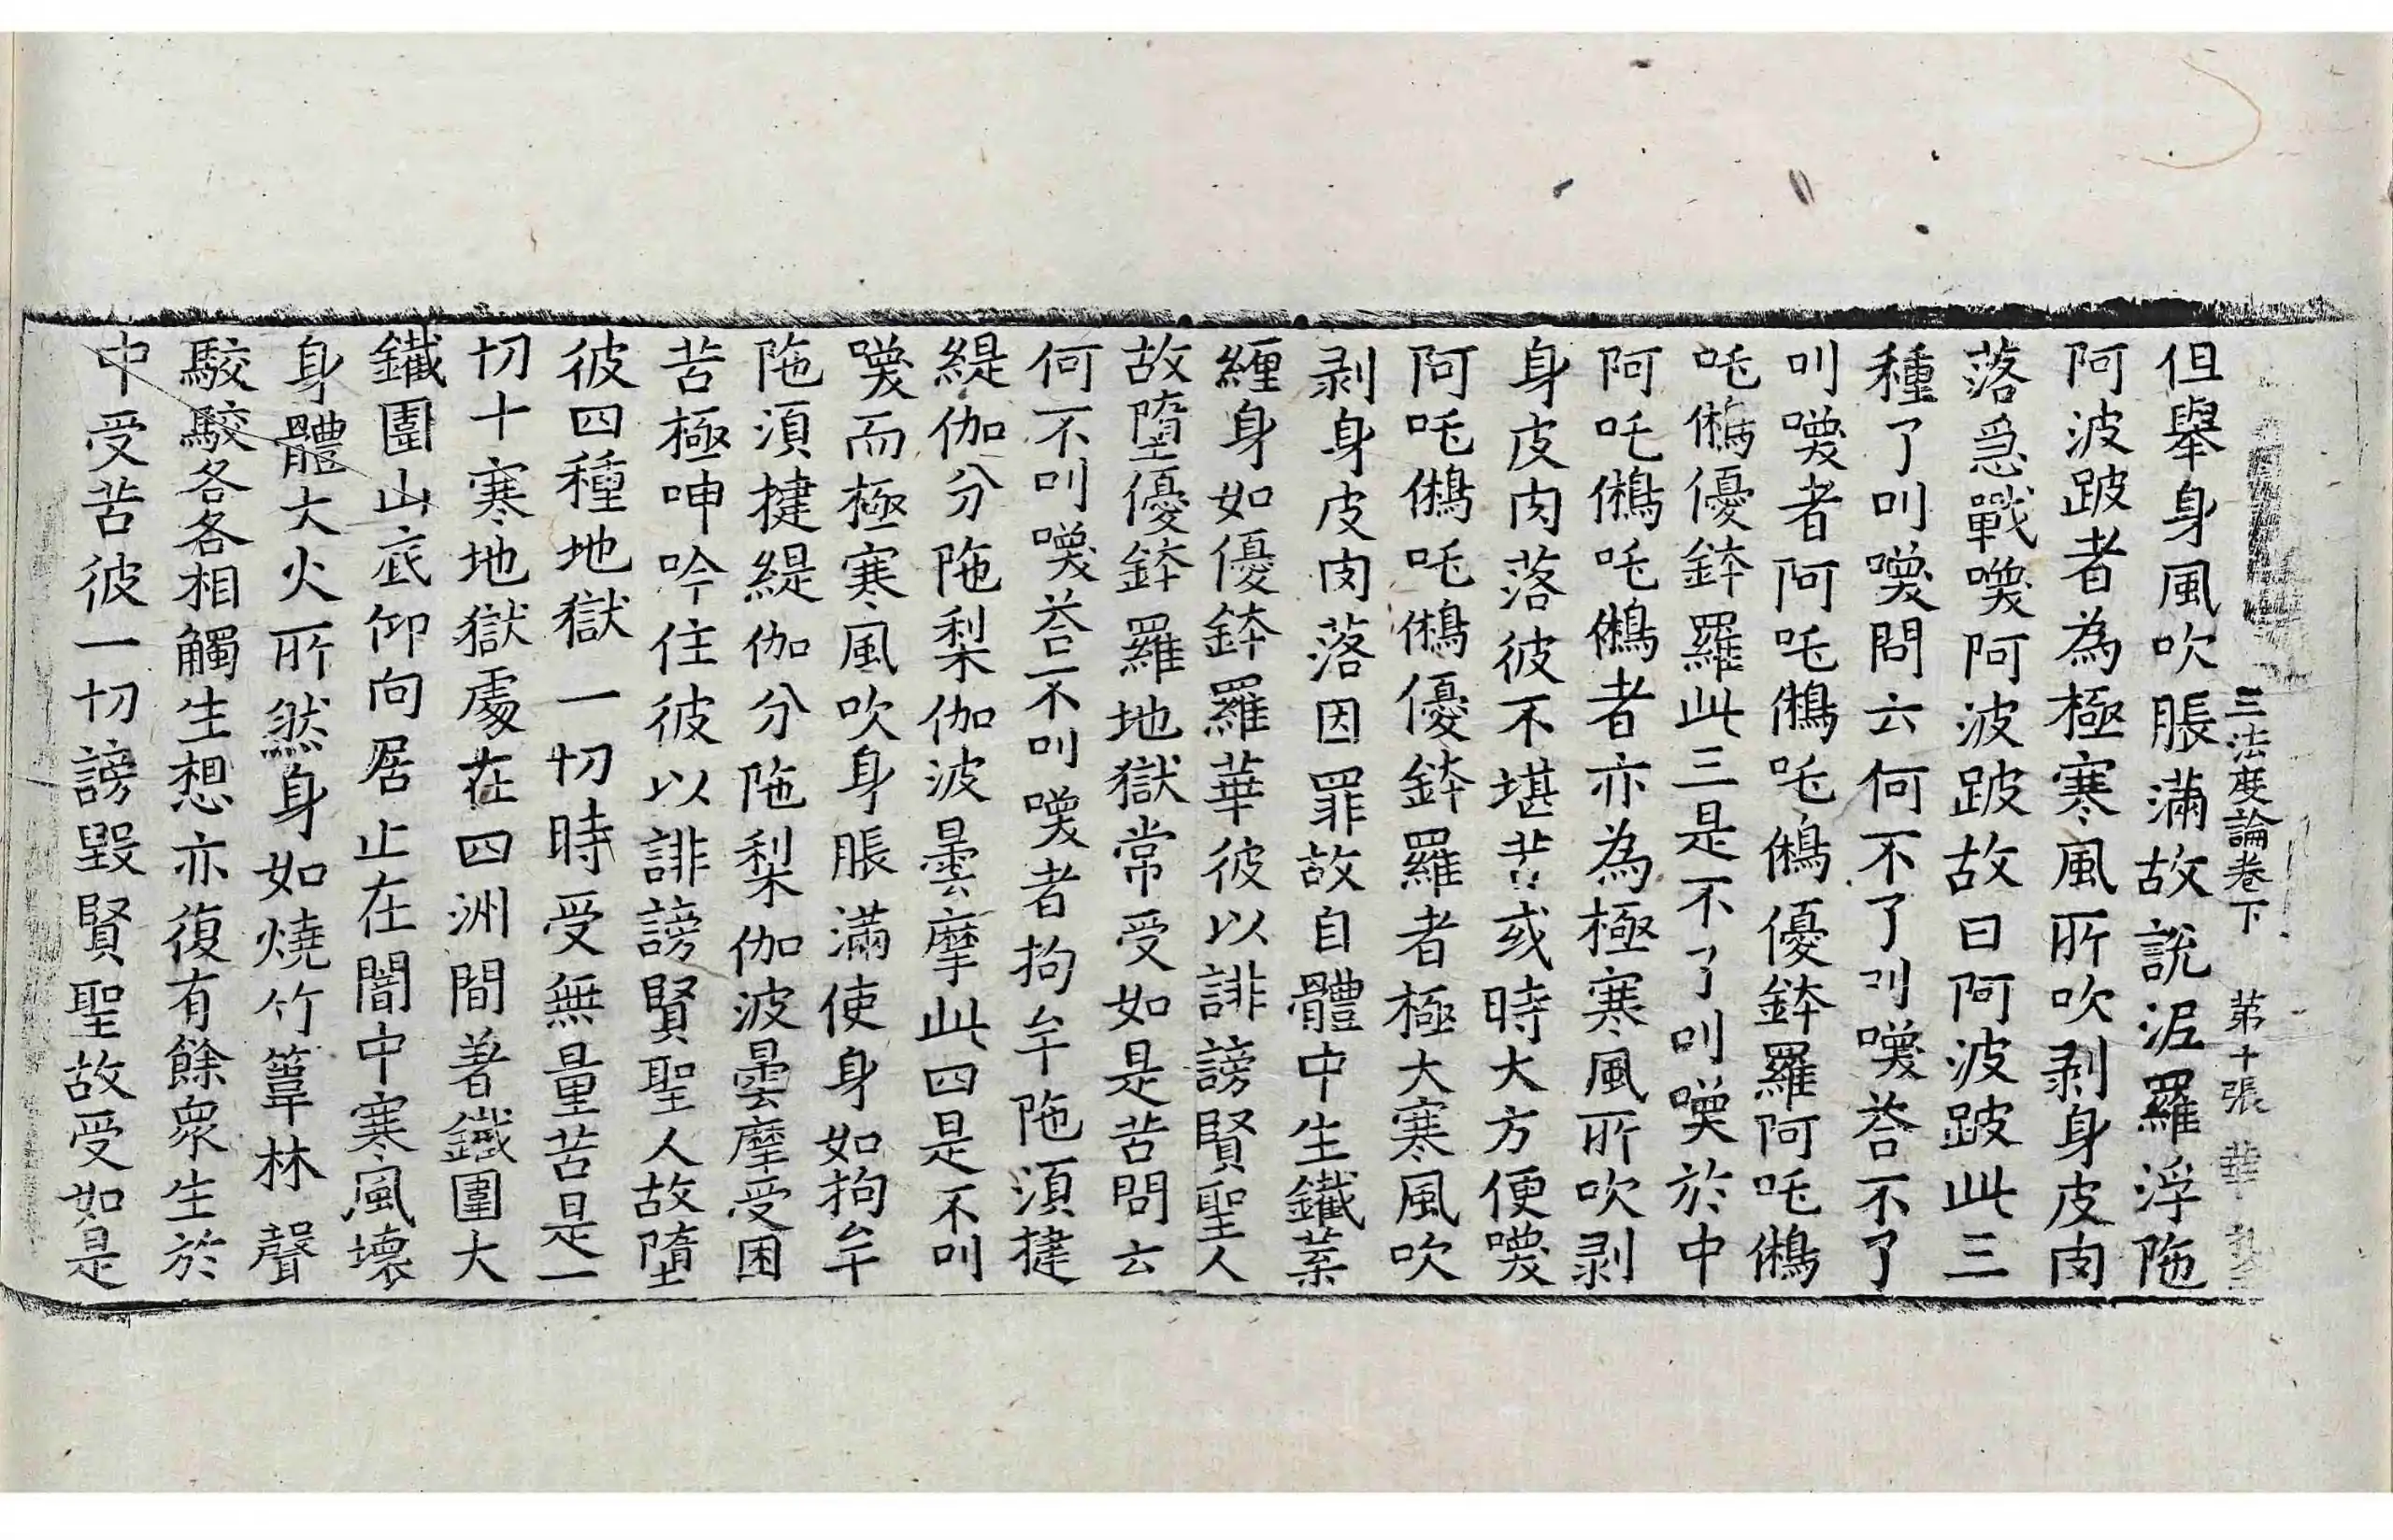 三法度論卷下 第十張 華
但舉身風吹脹滿故說泥羅浮陁
阿波跛者為極寒風所吹剥身皮肉
落急戰㗫阿波跛故曰阿波跛此三
種了叫㗫問云何不了叫㗫荅不了
叫㗫者阿吒鵂吒鵂優鉢羅阿吒鵂
吒鵂優鉢羅此三是不了叫㗫於中
阿吒鵂吒鵂者亦為極寒風所吹剥
身皮肉落彼不堪苦或時大方便㗫
阿吒鵂吒鵂優鉢羅者極大寒風吹
剥身皮肉落因罪故自體中生鐵葉
纏身如優鉢羅華彼以誹謗賢聖人
故墮優鉢羅地獄常受如是苦問云
何不叫㗫荅不叫㗫者拘牟陁須揵
緹伽分陁梨伽波曇摩此四是不叫
㗫而極寒風吹身脹滿使身如拘牟
陁須揵緹伽分陁梨伽波曇摩受困
苦極呻吟住彼以誹謗賢聖人故墮
彼四種地獄一切時受無量苦是一
切十寒地獄處在四洲間著鐵圍大
鐵圍山底仰向居止在闇中寒風壞
身體大火所然身如燒竹葦林聲
駮駮各各相觸生想亦復有餘衆生於
中受苦彼一切謗毀賢聖故受如是